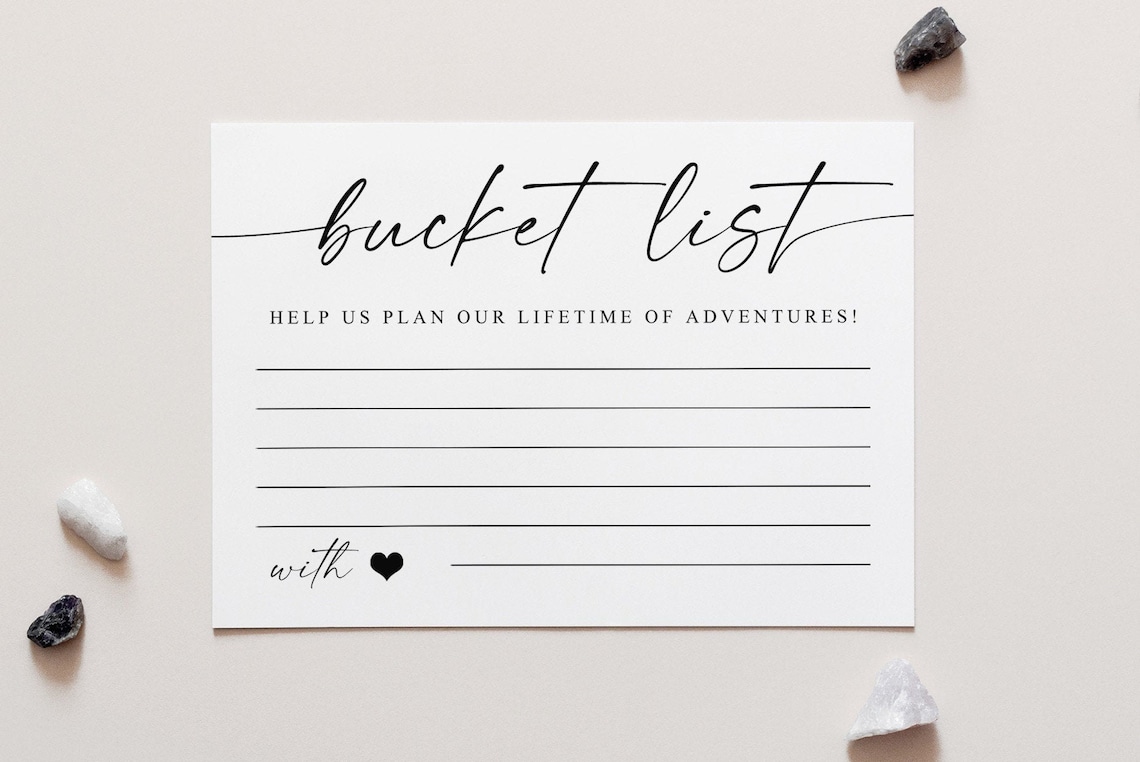 bucket list
HELP US PLAN OUR LIFETIME OF ADVENTURES!
with ♥